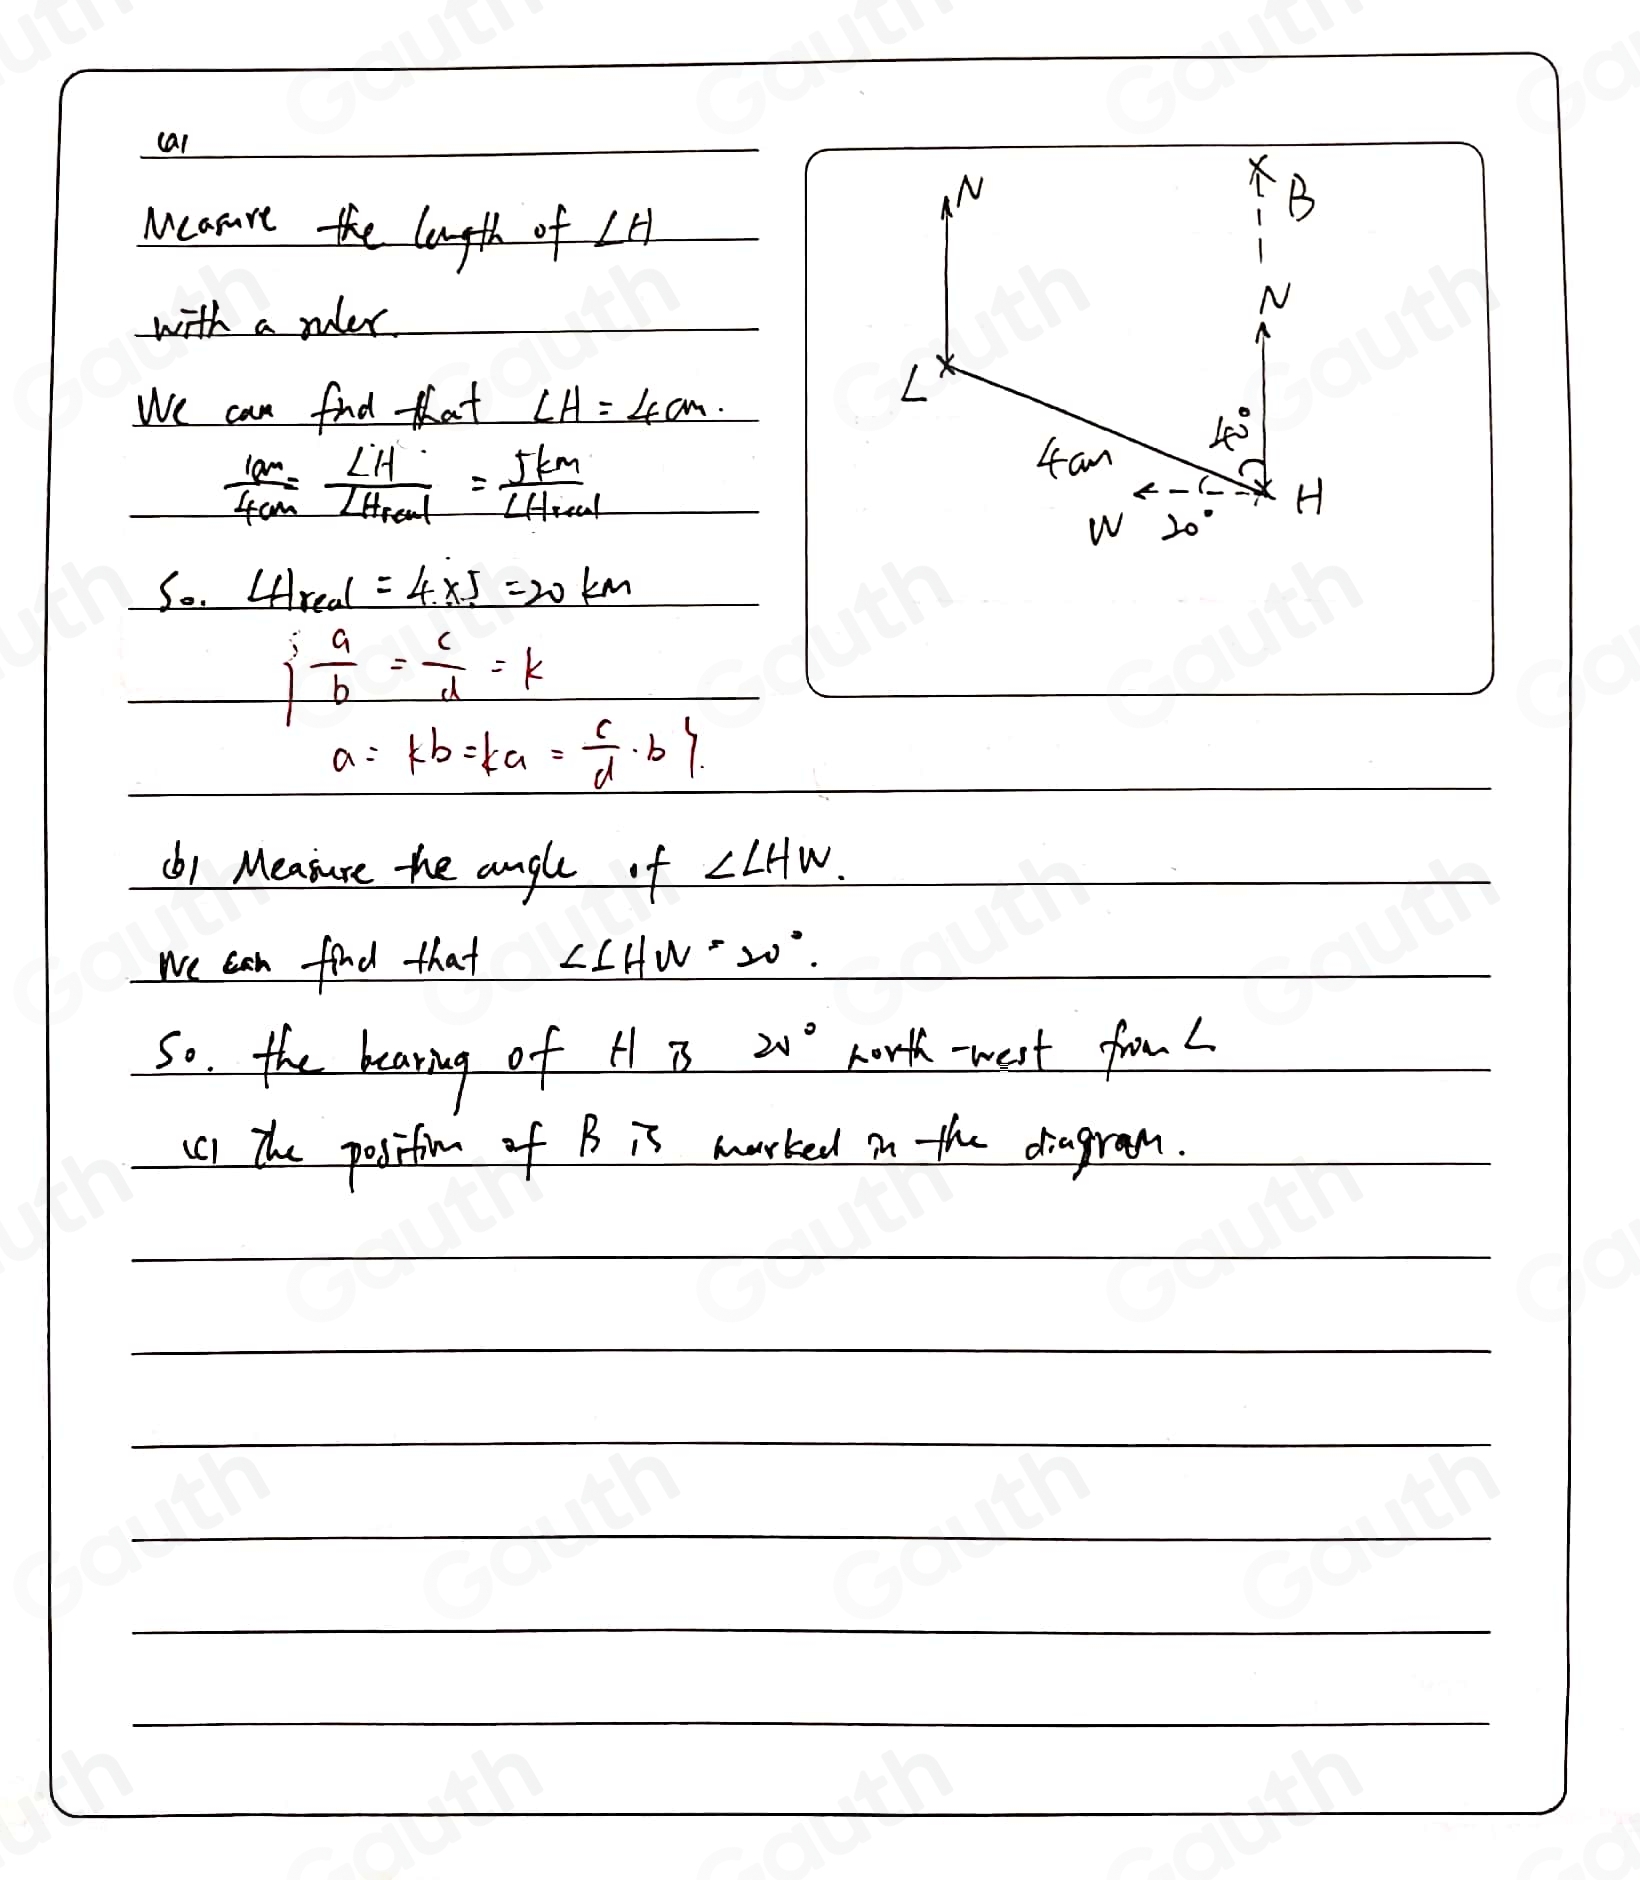 (a)
Measure the length of LH
with a ruler.
We can find that LH = 4cm.
1cm/4cm = LH/LHreal = 5km/LHreal
So. LHreal = 4×5 = 20 km
{ a/b = c/d = k
a = kb = ka = c/d · b }.
N
B
N
L
40°
4cm
H
W 20°
(b) Measure the angle of ∠LHW.
We can find that ∠LHW = 20°.
So. the bearing of H is 20° north-west from L
(c) The position of B is marked in the diagram.
Gauth